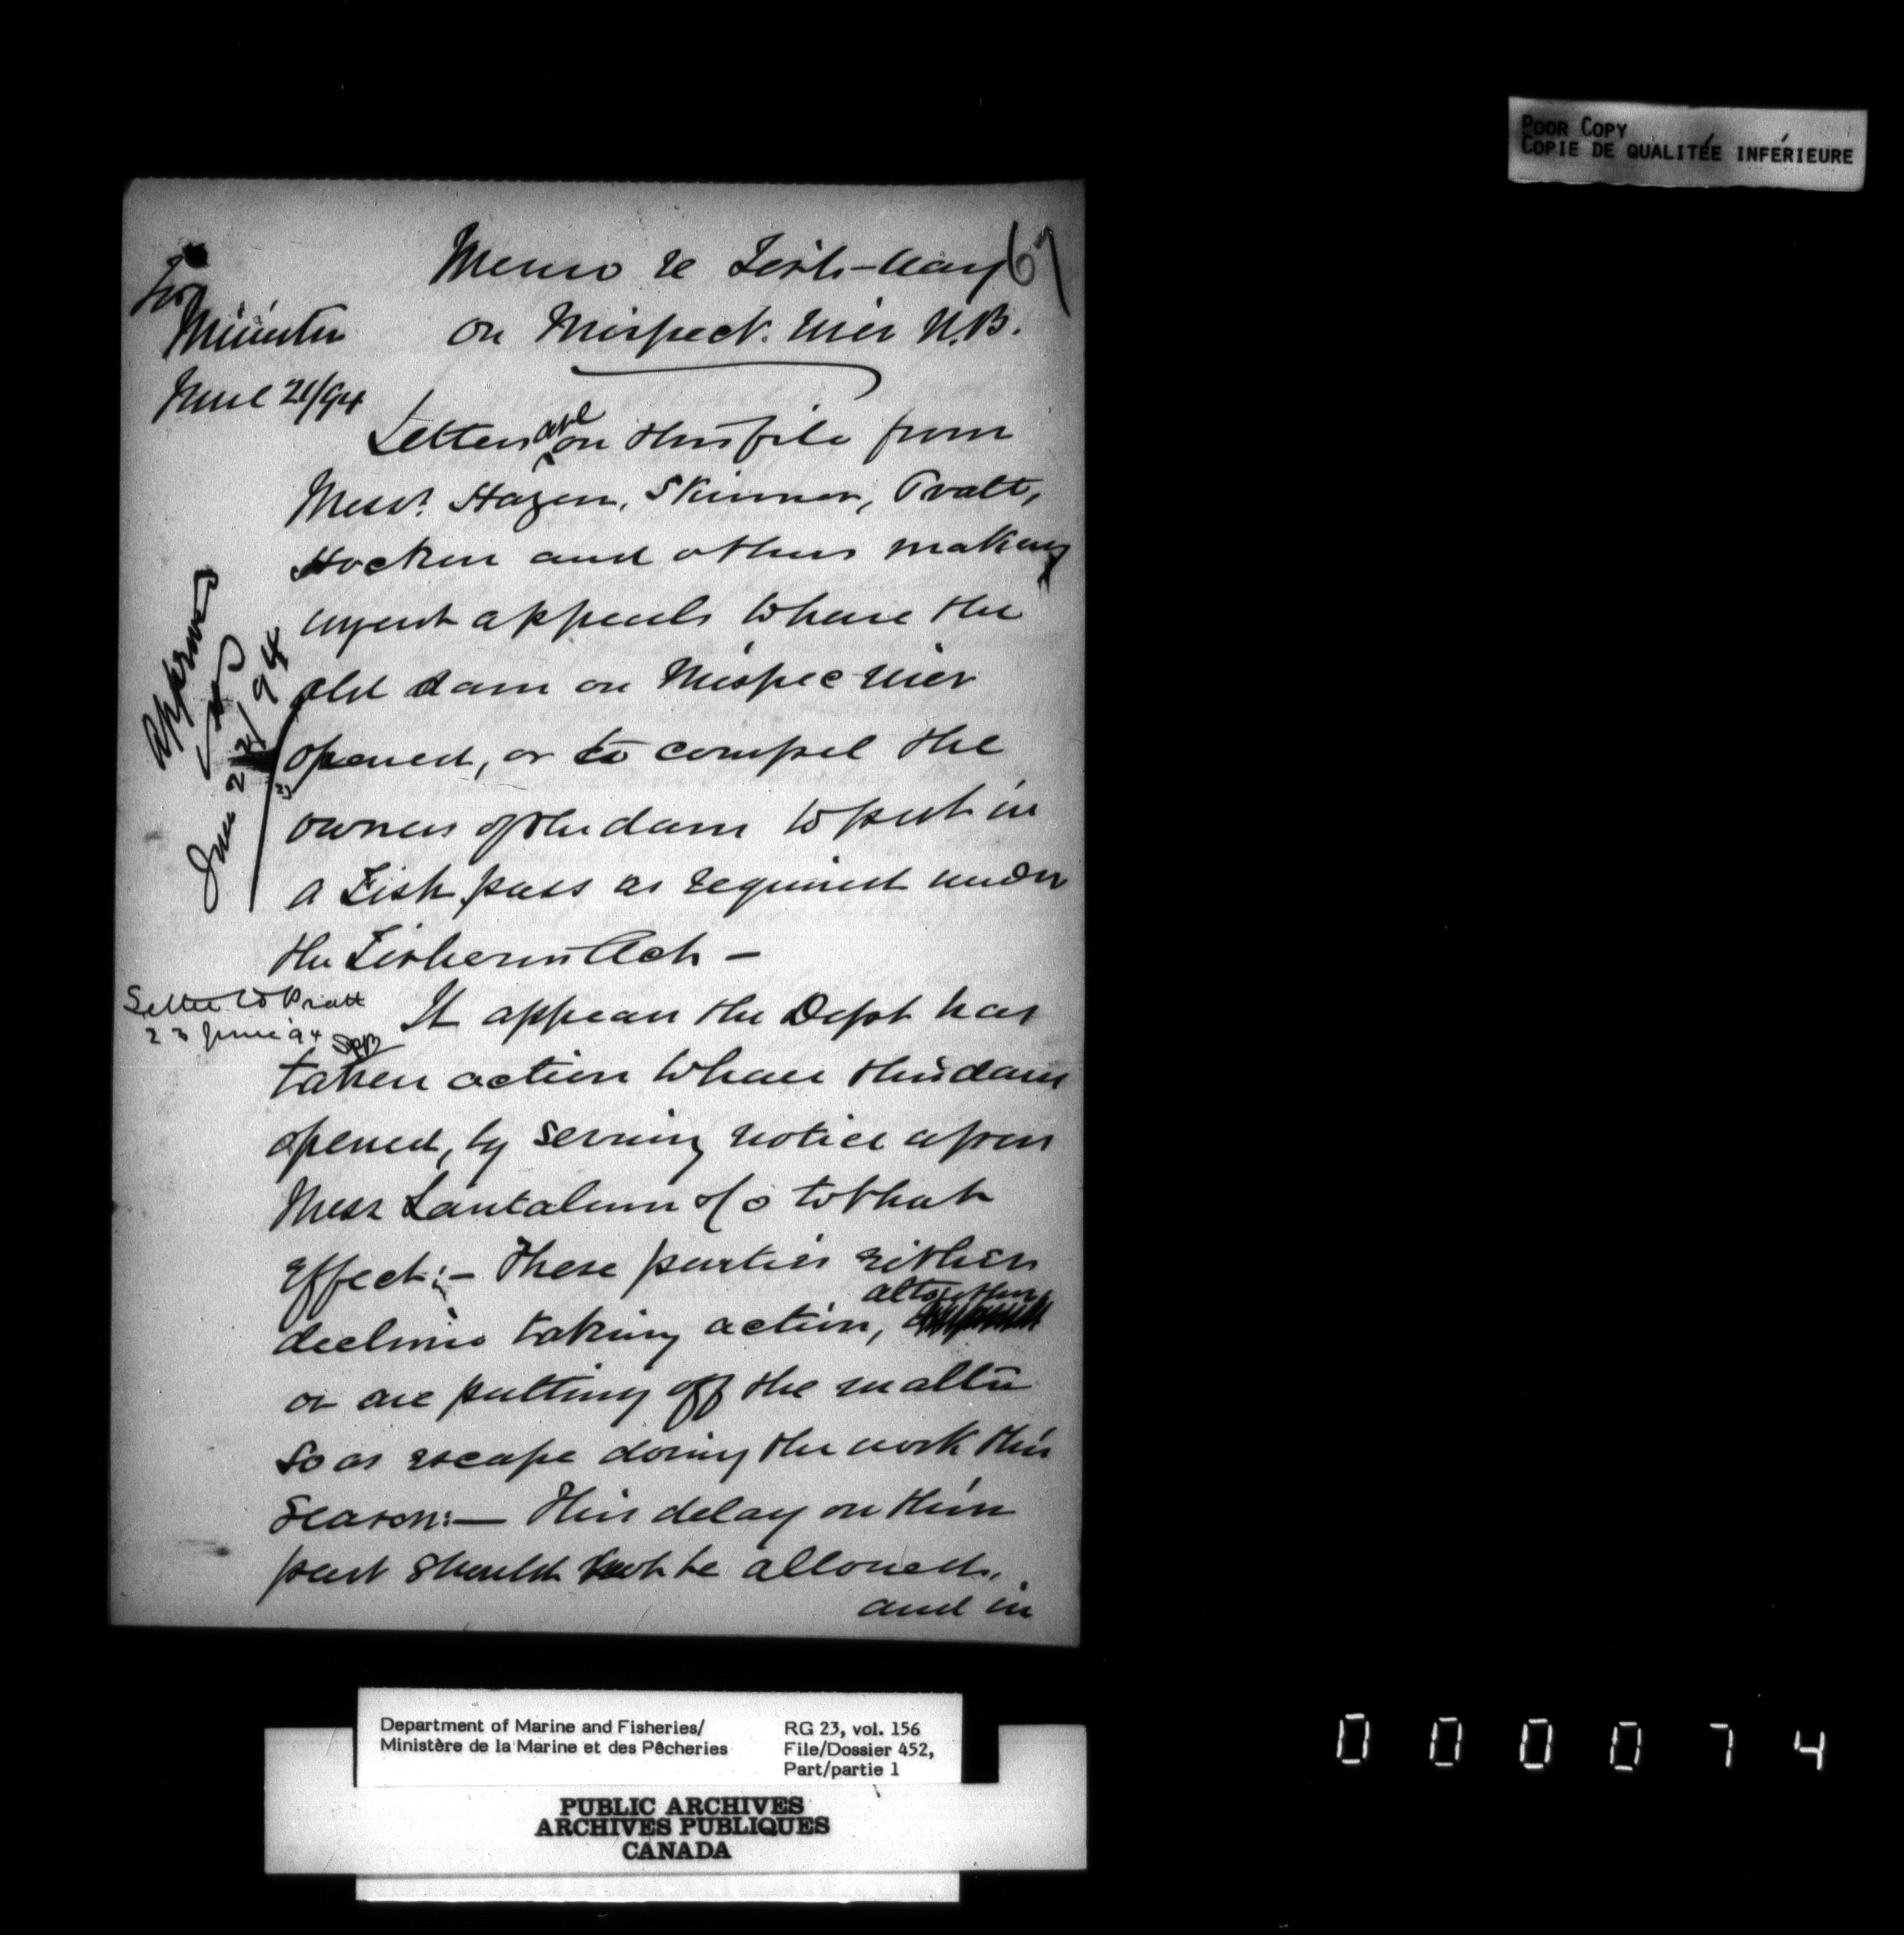 POOR COPY
COPIE DE QUALITÉE INFÉRIEURE
67
Memo re Fish-way
on Mispeck River N.B.
For
Minister
June 21/94
Letters are on this file from
Messrs. Hazen, Skinner, Pratt,
Hocken and others making
urgent appeals to have the
old dam on Mispec River
opened, or to compel the
owners of the dam to put in
a Fish pass as required under
the Fisheries Act —
Approved
June 22/94
Letter to Pratt
23 June 94
It appears the Dept has
taken action to have this dam
opened, by serving notice upon
Messr Lantalum & Co to that
effect:— These parties either
decline taking action, altogether
or are putting off the matter
so as escape doing the work this
season:— This delay on their
part should not be allowed,
and in
Department of Marine and Fisheries/
Ministère de la Marine et des Pêcheries
RG 23, vol. 156
File/Dossier 452,
Part/partie 1
PUBLIC ARCHIVES
ARCHIVES PUBLIQUES
CANADA
000074